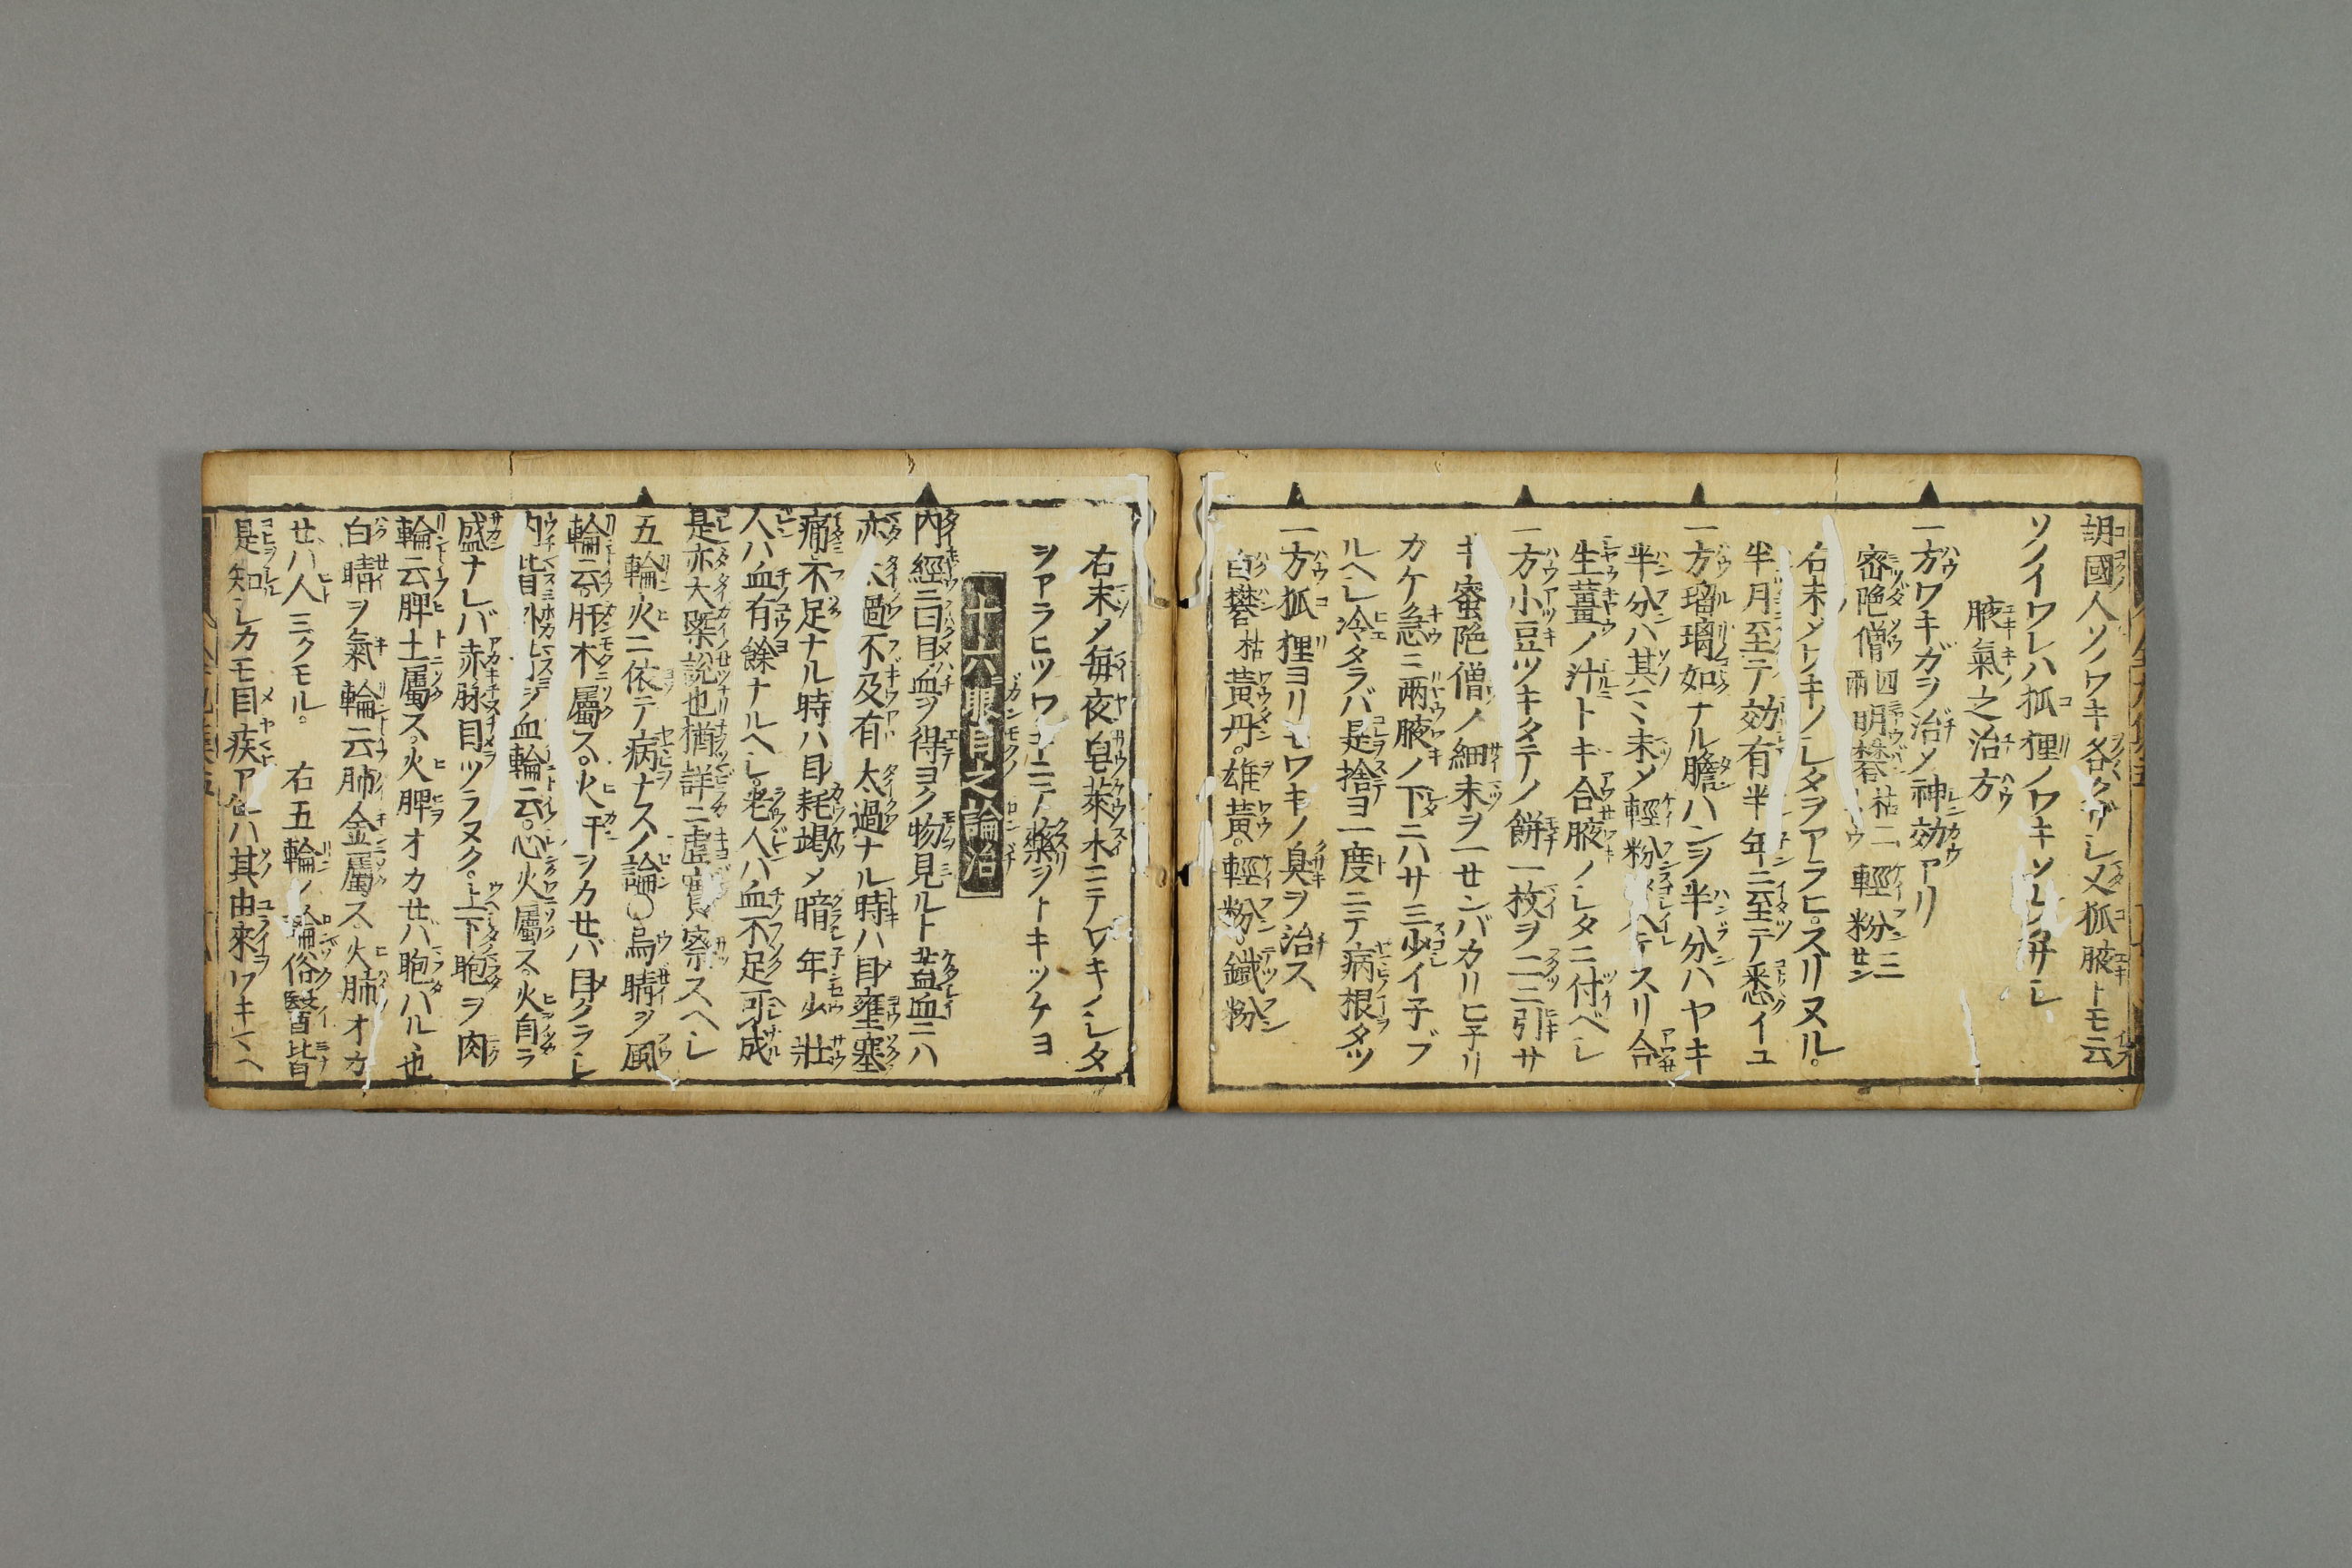 胡國人ソノワキ各クサレ又狐腋トモ云
ソノイワレハ狐狸ノワキソレ
腋氣之治方
一方ワキガヲ治メ神効アリ
密陀僧四兩 明礬枯二 輕粉三
右末メワキノレタヲアラヒ。スリヌル。
半月至テ効有半年ニ至テ悉イユ
一方瑠璃如ナル膽ハンヲ半分ハヤキ
半分ハ其ミ末メ輕粉入テスリ合
生薑ノ汁トキ合腋ノレタニ付ベレ
一方小豆ツキタテノ餅一枚ヲ二三引サ
キ蜜陀僧ノ細末ヲ一センバカリヒ子リ
ガケ急ニ兩腋ノ下ニハサミ少イ子ブ
ルヘレ冷タラバ是捨ヨ一度ニテ病根タツ
一方狐狸ヨリモワキノ臭ヲ治ス
白礬枯 黃丹。雄黃。輕粉 鐵粉
右末メ毎夜皂莢水ニテワキノレタ
ヲアラヒツワキニテ藥ヲトキツケヨ
十六眼目之論治
內經ニ曰目血ヲ得ヨク物見ルト云血ニハ
亦太過不及有太過ナル時ハ目壅塞
痛不足ナル時ハ目耗竭メ暗年少壯
人ハ血有餘ナルヘレ。老人ハ血不足可成
是亦大槩說也猶詳ニ虛實察スヘレ
五輪火ニ依テ病ナスノ論〇烏睛ヲ風
輪云。肝木屬ス。火干ヲカセバ目クラレ
內眥外ヒレヲ血輪云。心火屬ス。火自ラ
盛ナレバ赤脉目ツラヌク。上下胞ヲ肉
輪云脾土屬ス。火脾オカセバ胞ハル、也
白睛ヲ氣輪云肺金屬ス。火肺オカ
セハ人ミクモル。 右五輪ノ論俗醫皆
是知レカモ目疾アレハ其由來ワキマヘ